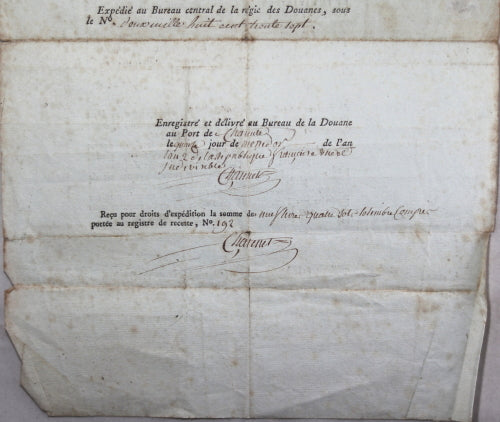 Expédié au Bureau central de la régie des Douanes, sous
le No. deux mille huit cent trente sept.
Enregistré et délivré au Bureau de la Douane
au Port de
le jour de de l'an
l'an 2 de la République française une et
indivisible
Reçu pour droits d'expédition la somme de neuf livre quatre sol timbre Compris
portée au registre de recette, No. 192